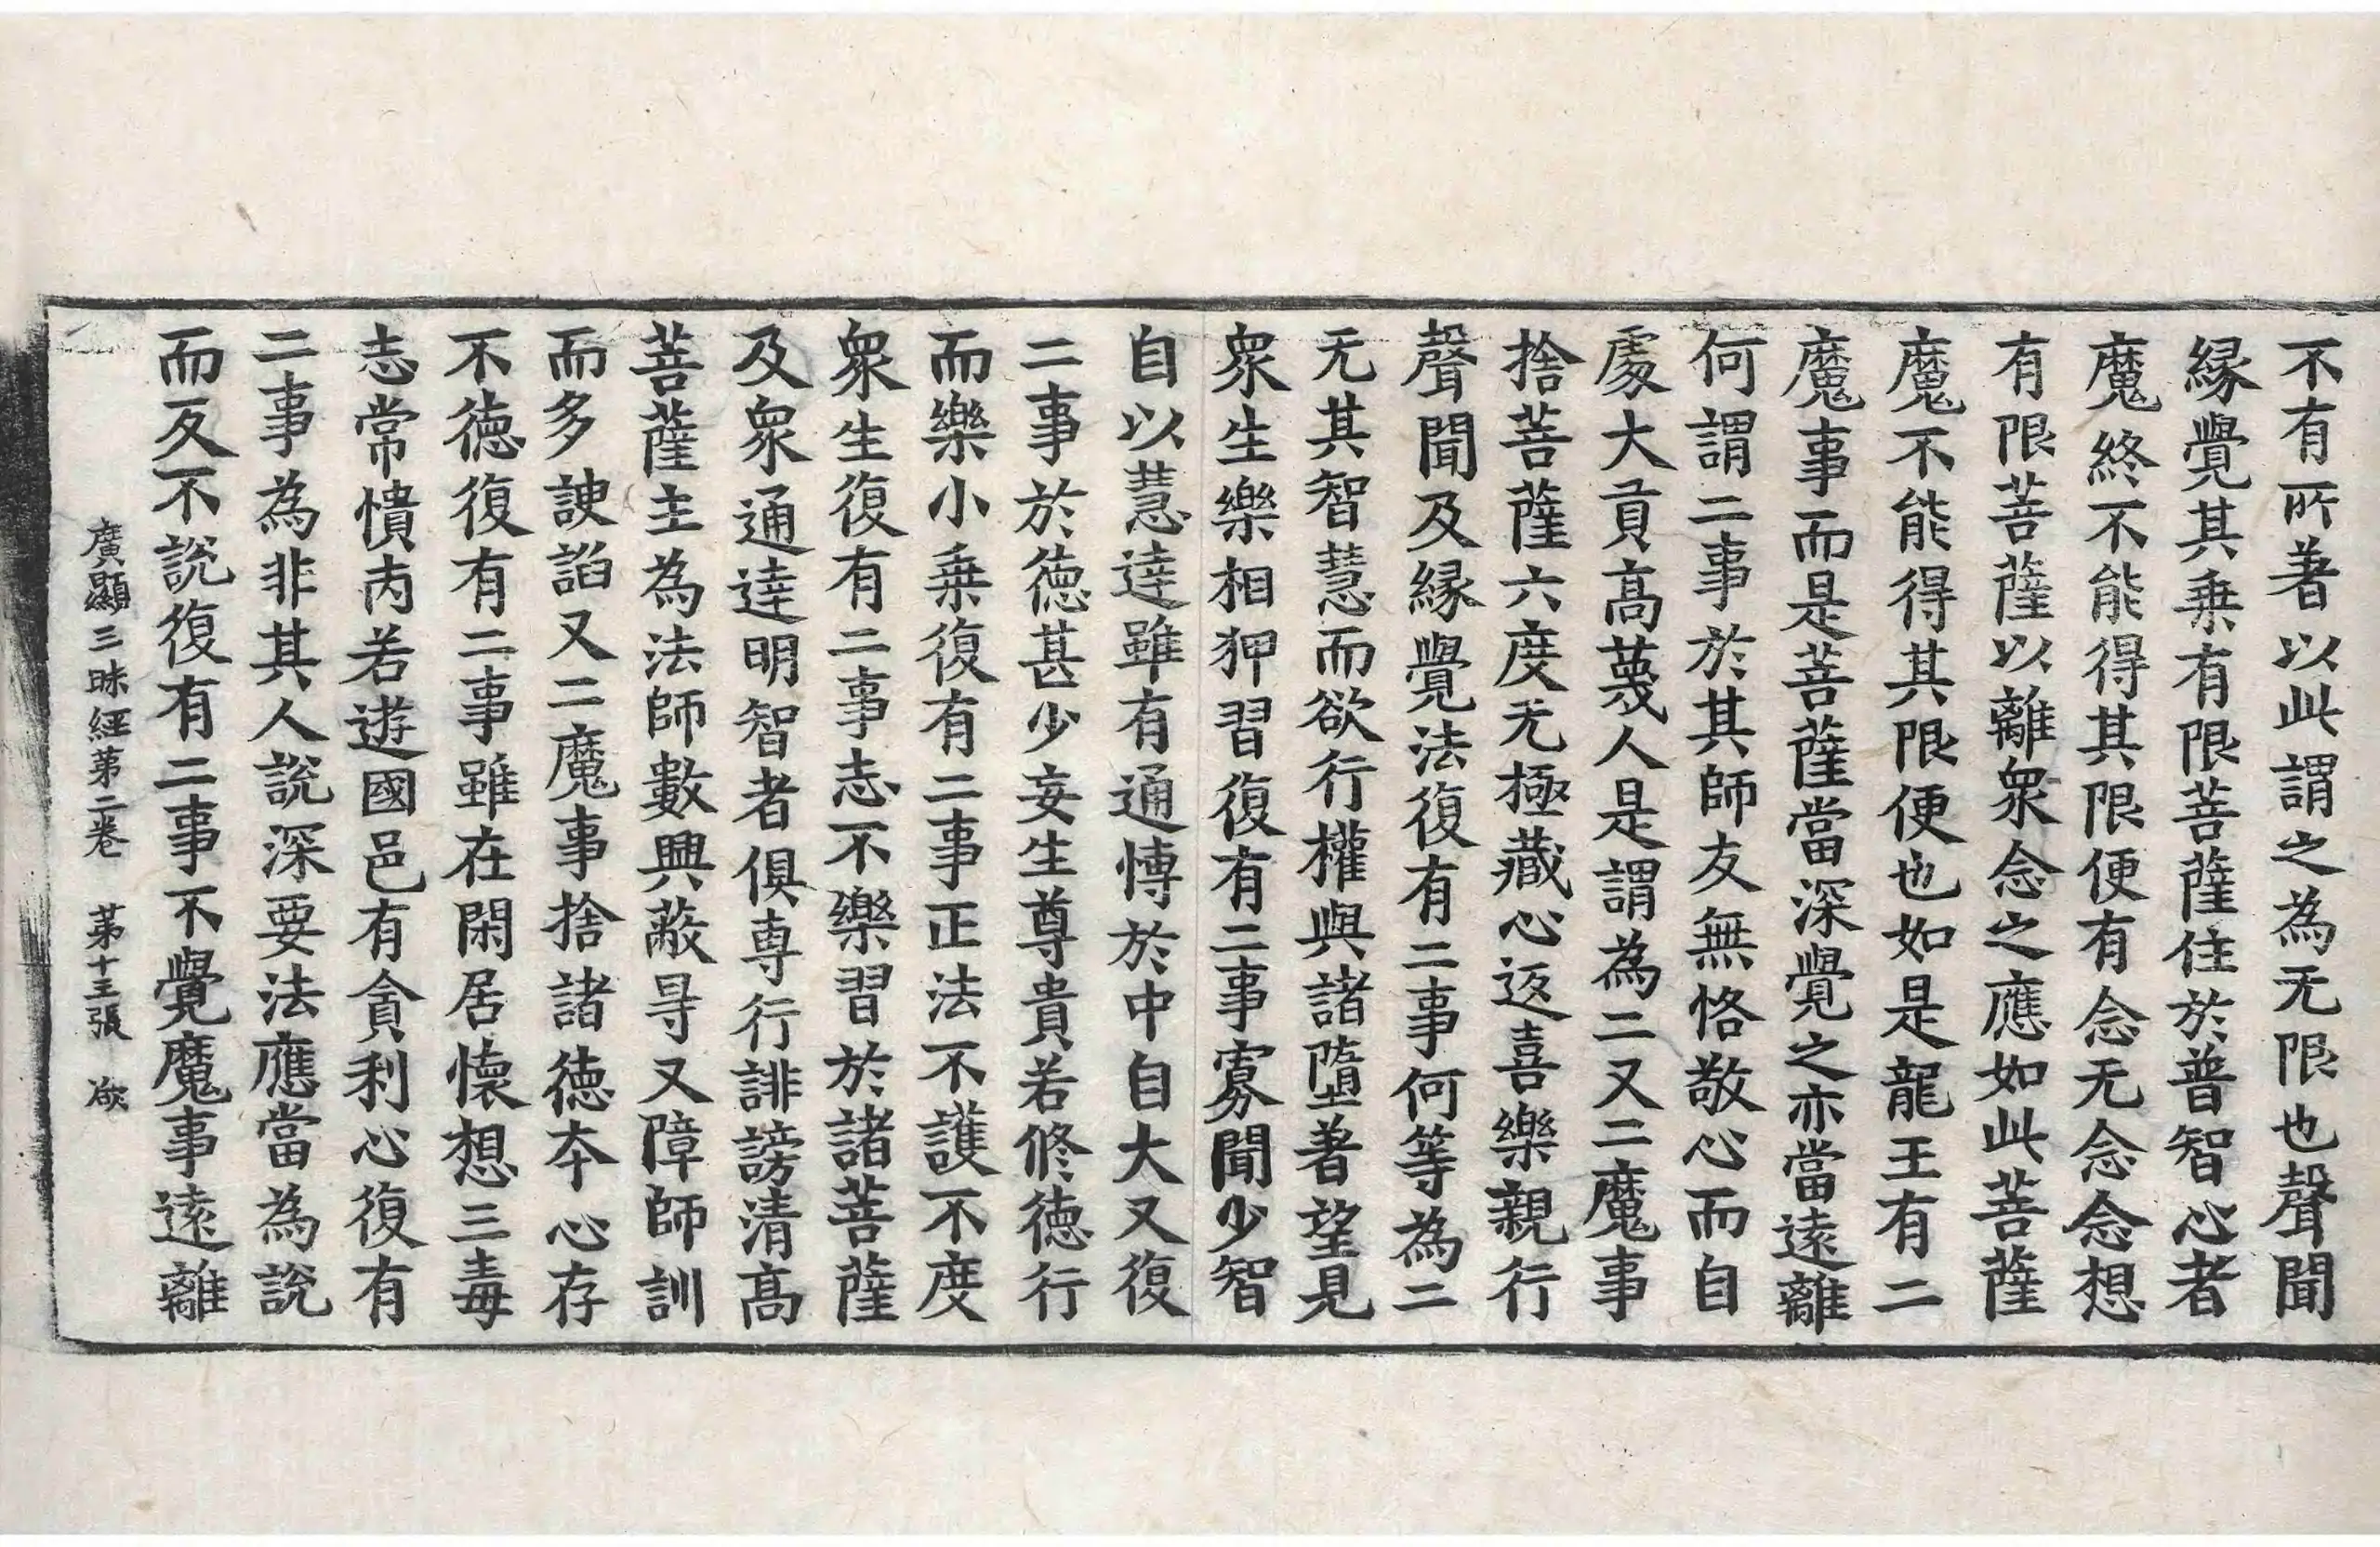 不有所著以此謂之為无限也聲聞
緣覺其乗有限菩薩住於普智心者
魔終不能得其限便有念无念念想
有限菩薩以離衆念之應如此菩薩
魔不能得其限便也如是龍王有二
魔事而是菩薩當深覺之亦當遠離
何謂二事於其師友無恪敬心而自
處大貢高蔑人是謂為二又二魔事
捨菩薩六度无極藏心返喜樂親行
聲聞及緣覺法復有二事何等為二
无其智慧而欲行權與諸墮著望見
衆生樂相狎習復有二事寡聞少智
自以慧達雖有通愽於中自大又復
二事於徳甚少妄生尊貴若修德行
而樂小乗復有二事正法不護不度
衆生復有二事志不樂習於諸菩薩
及衆通達明智者俱專行誹謗清高
菩薩主為法師數興蔽㝵又障師訓
而多諛謟又二魔事捨諸徳夲心存
不徳復有二事雖在閑居懷想三毒
志常憒丙若遊國邑有貪利心復有
二事為非其人說深要法應當為說
而反不說復有二事不覺魔事遠離
廣顯三昧經第二卷 第十三張